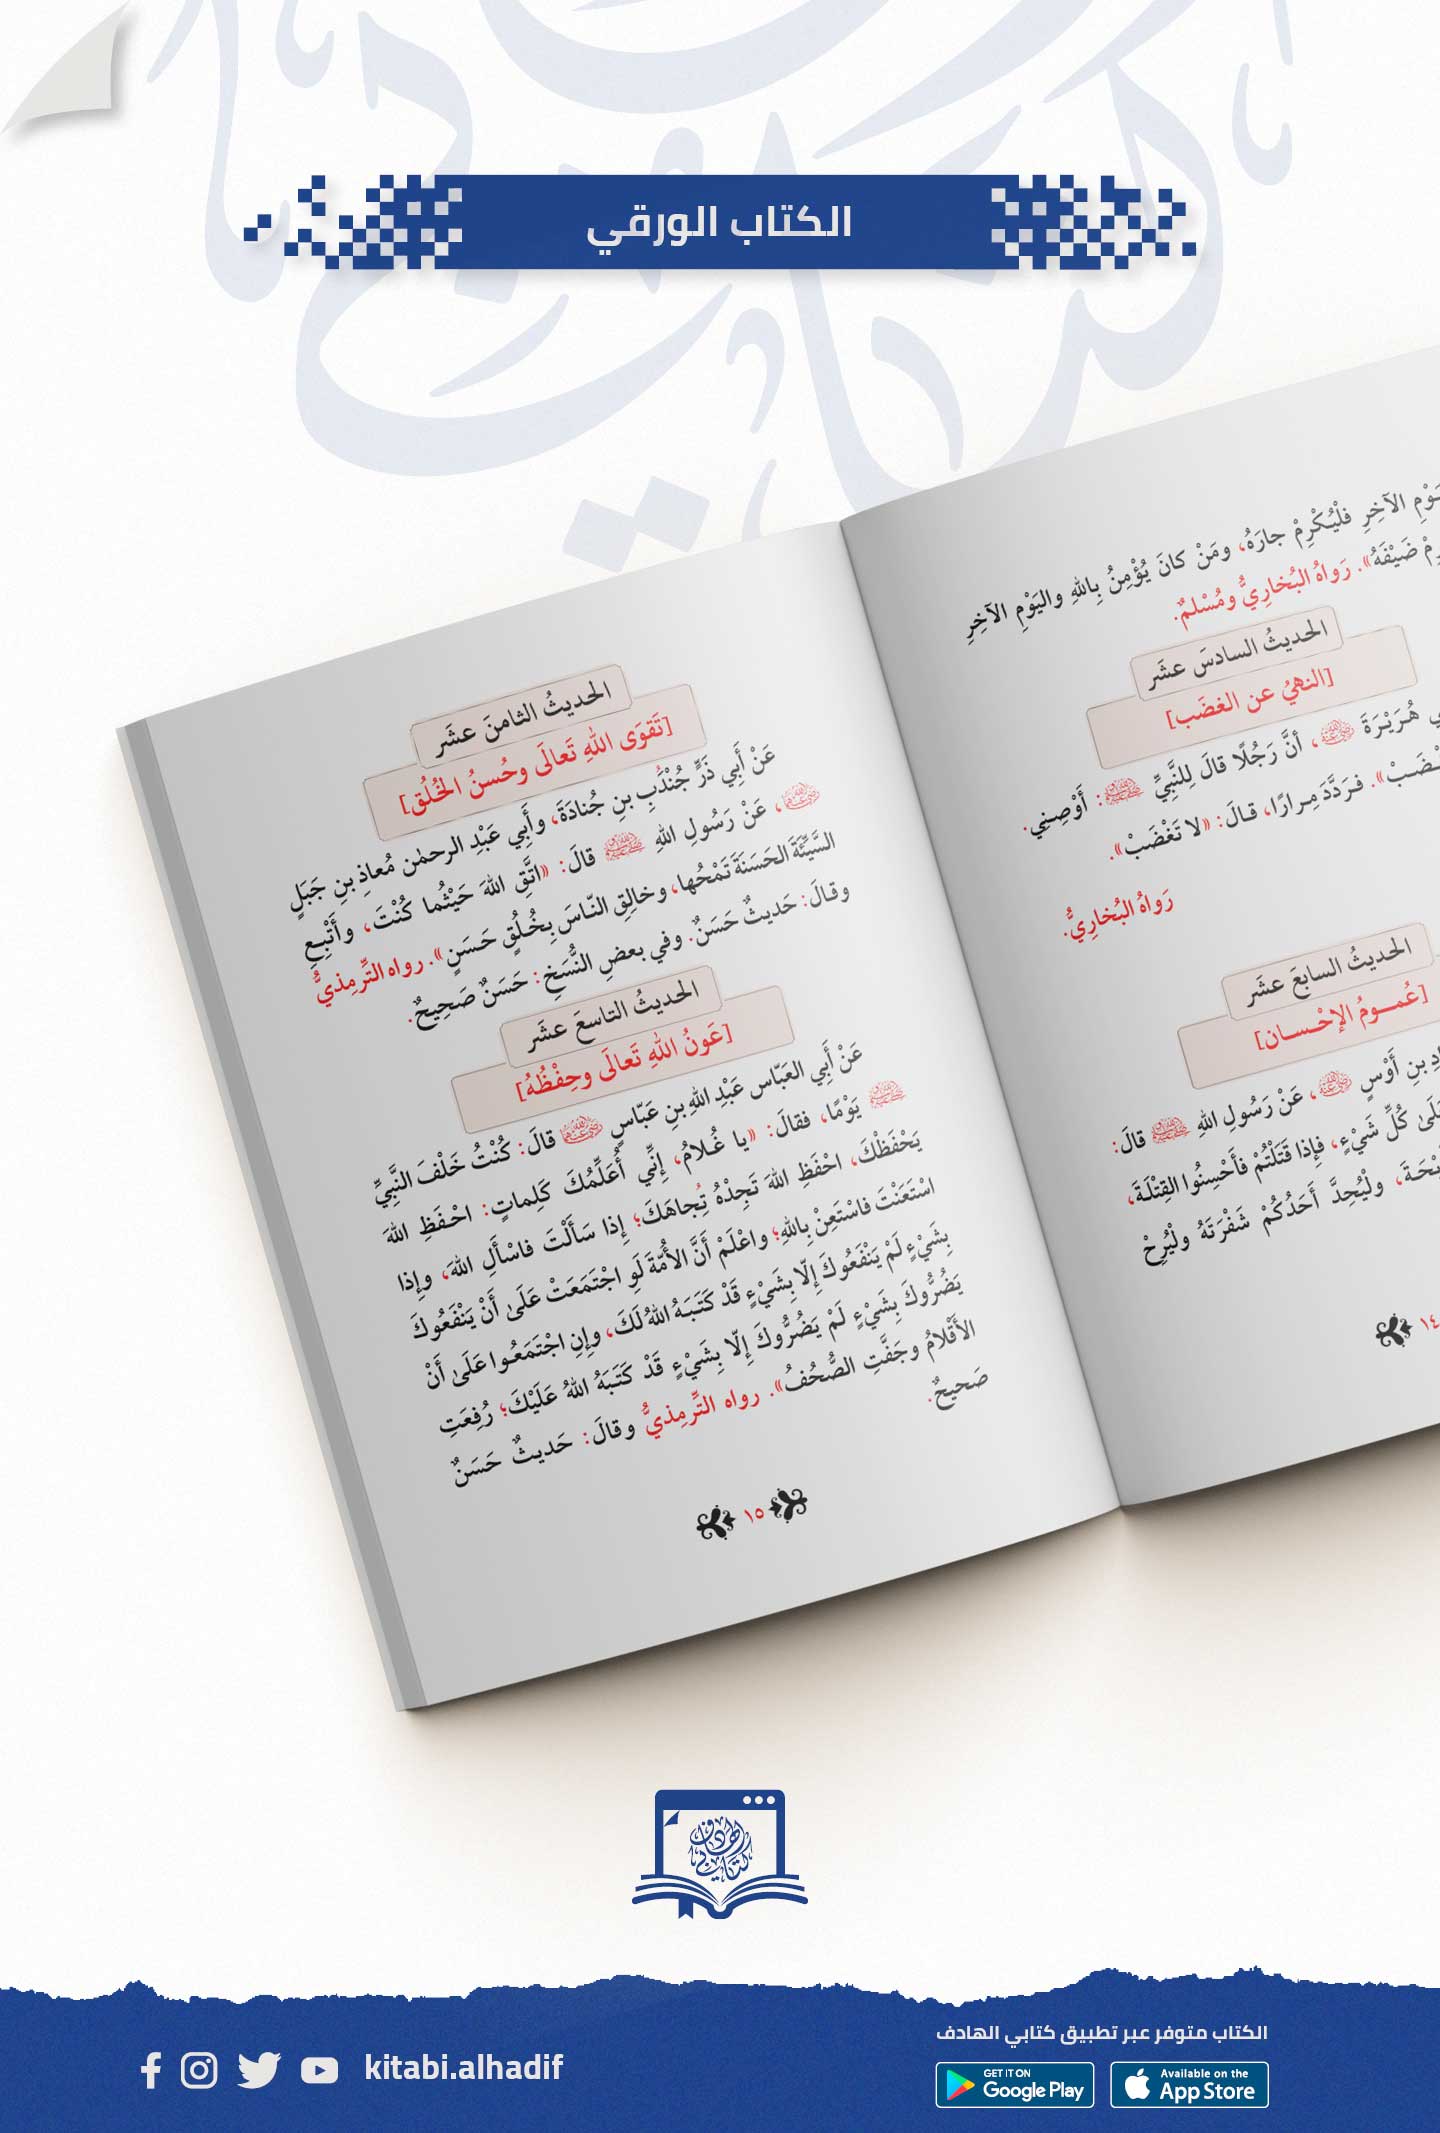 الكتاب الورقي
ـوْمِ الآخِرِ فلْيُكْرِمْ جارَهُ، ومَنْ كانَ يُؤْمِنُ بِاللهِ واليَوْمِ الآخِرِ
ضَيْفَهُ». رَواهُ البُخارِيُّ ومُسْلمٌ.
الحديثُ السادسَ عشَر
[النهيُ عن الغضَب]
هُرَيْرَةَ رضي الله عنه، أنَّ رَجُلًا قالَ لِلنَّبِيِّ ﷺ: أَوْصِنِي.
فرَدَّدَ مِرارًا، قالَ: «لا تَغْضَبْ».
رَواهُ البُخارِيُّ.
الحديثُ السابعَ عشَر
[عُمومُ الإحْسان]
بنِ أَوْسٍ رضي الله عنه، عَنْ رَسُولِ اللهِ ﷺ قالَ:
كُلِّ شَيْءٍ، فإِذا قَتَلْتُمْ فأَحْسِنُوا القِتْلَةَ،
ولْيُحِدَّ أَحَدُكُمْ شَفْرَتَهُ ولْيُرِحْ
١٤
الحديثُ الثامنَ عشَر
[تَقوَى اللهِ تَعالَى وحُسنُ الخُلُق]
عَنْ أَبِي ذَرٍّ جُنْدُبِ بنِ جُنادَةَ، وأَبِي عَبْدِ الرحمٰن مُعاذِ بنِ جَبَلٍ
رضي الله عنهما، عَنْ رَسُولِ اللهِ ﷺ قالَ: «اتَّقِ اللهَ حَيْثُما كُنْتَ، وأَتْبِعِ
السَّيِّئَةَ الحَسَنَةَ تَمْحُها، وخالِقِ النّاسَ بِخُلُقٍ حَسَنٍ». رواه التِّرمِذيُّ
وقالَ: حَديثٌ حَسَنٌ. وفي بعضِ النُّسَخِ: حَسَنٌ صَحِيحٌ.
الحديثُ التاسعَ عشَر
[عَونُ اللهِ تَعالَى وحِفْظُهُ]
عَنْ أَبِي العَبّاس عَبْدِ اللهِ بنِ عَبّاسٍ رضي الله عنهما قالَ: كُنْتُ خَلْفَ النَّبِيِّ
ﷺ يَوْمًا، فقالَ: «يا غُلامُ، إِنِّي أُعَلِّمُكَ كَلِماتٍ: احْفَظِ اللهَ
يَحْفَظْكَ، احْفَظِ اللهَ تَجِدْهُ تُجاهَكَ؛ إِذا سَأَلْتَ فاسْأَلِ اللهَ، وإِذا
اسْتَعَنْتَ فاسْتَعِنْ بِاللهِ؛ واعْلَمْ أَنَّ الأُمَّةَ لَوِ اجْتَمَعَتْ عَلَىٰ أَنْ يَنْفَعُوكَ
بِشَيْءٍ لَمْ يَنْفَعُوكَ إِلّا بِشَيْءٍ قَدْ كَتَبَهُ اللهُ لَكَ، وإِنِ اجْتَمَعُوا عَلَىٰ أَنْ
يَضُرُّوكَ بِشَيْءٍ لَمْ يَضُرُّوكَ إِلّا بِشَيْءٍ قَدْ كَتَبَهُ اللهُ عَلَيْكَ؛ رُفِعَتِ
الأَقْلامُ وجَفَّتِ الصُّحُفُ». رواه التِّرمِذيُّ وقالَ: حَديثٌ حَسَنٌ
صَحيحٌ.
١٥
كتابي الهادف
الكتاب متوفر عبر تطبيق كتابي الهادف
kitabi.alhadif
GET IT ON Google Play
Available on the App Store